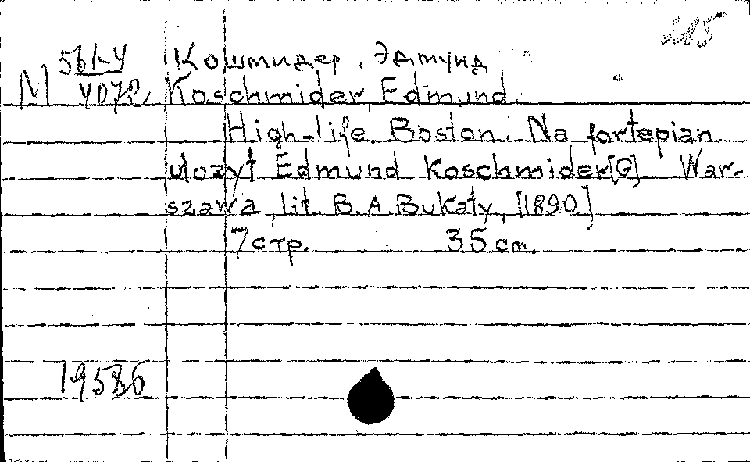 285
М 561-4/4072
Кошмидер, Эдмунд
Koschmider, Edmund.
High-life Boston. Na fortepian
ułożył Edmund Koschmider[G]. War-
szawa, lit. B.A.Bukaty, [1890]
7 стр. 35 cm.
19586